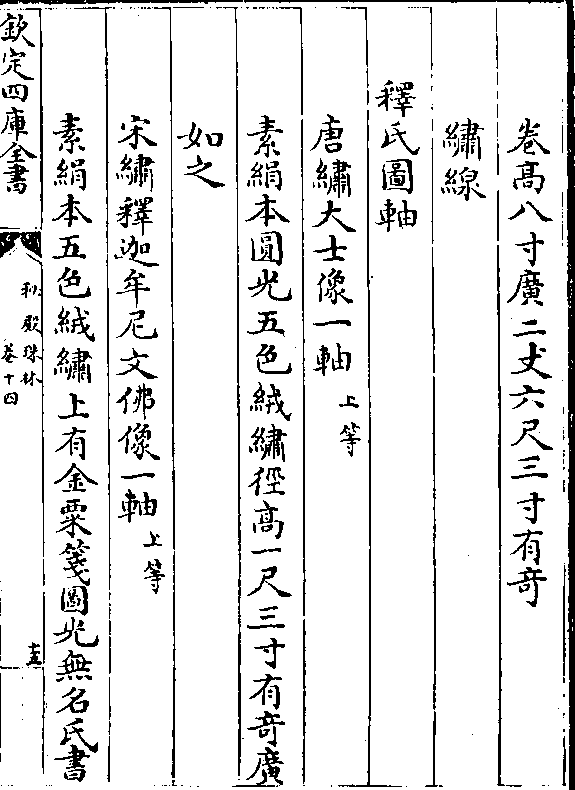 卷高八寸廣二丈六尺三寸有奇
繡線
釋氏圖軸
唐繡大士像一軸 上等
素絹本圓光五色絨繡徑高一尺三寸有奇廣
如之
宋繡釋迦牟尼文佛像一軸 上等
素絹本五色絨繡上有金粟箋圖光無名氏書
欽定四庫全書
秘殿珠林
卷十四
十五